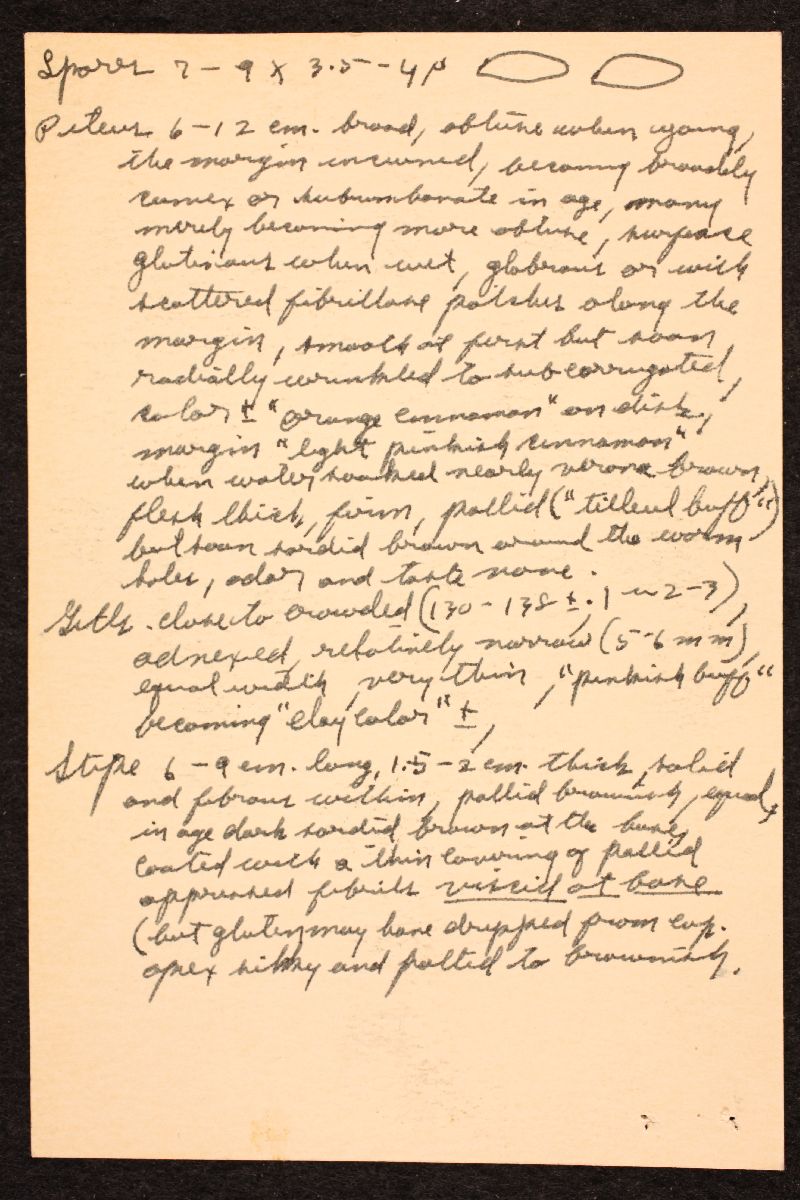 Spores 7-9 X 3.5-4 µ
Pileus 6-12 cm. broad, obtuse when young,
the margin incurved, becoming broadly
convex or subumbonate in age, many
merely becoming more obtuse, surface
glutinous when wet, glabrous or with
scattered fibrillose patches along the
margin, smooth at first but soon
radially wrinkled to subcorrugated,
color ± "orange cinnamon" on disk,
margin "light pinkish cinnamon"
when water soaked nearly verona brown,
flesh thick, firm, pallid ("tilleul buff")
but soon sordid brown around the worm
holes, odor and taste none.
Gills close to crowded (130-138 ±, l ~ 2-3),
adnexed, relatively narrow (5-6 mm),
equal width, very thin, "pinkish buff"
becoming "clay color" ±,
Stipe 6-9 cm. long, 1.5-2 cm. thick, solid
and fibrous within, pallid brownish, equal,
in age dark sordid brown at the base,
coated with a thin covering of pallid
appressed fibrils viscid at base
(but gluten may have dripped from cap.
apex silky and pallid to brownish.